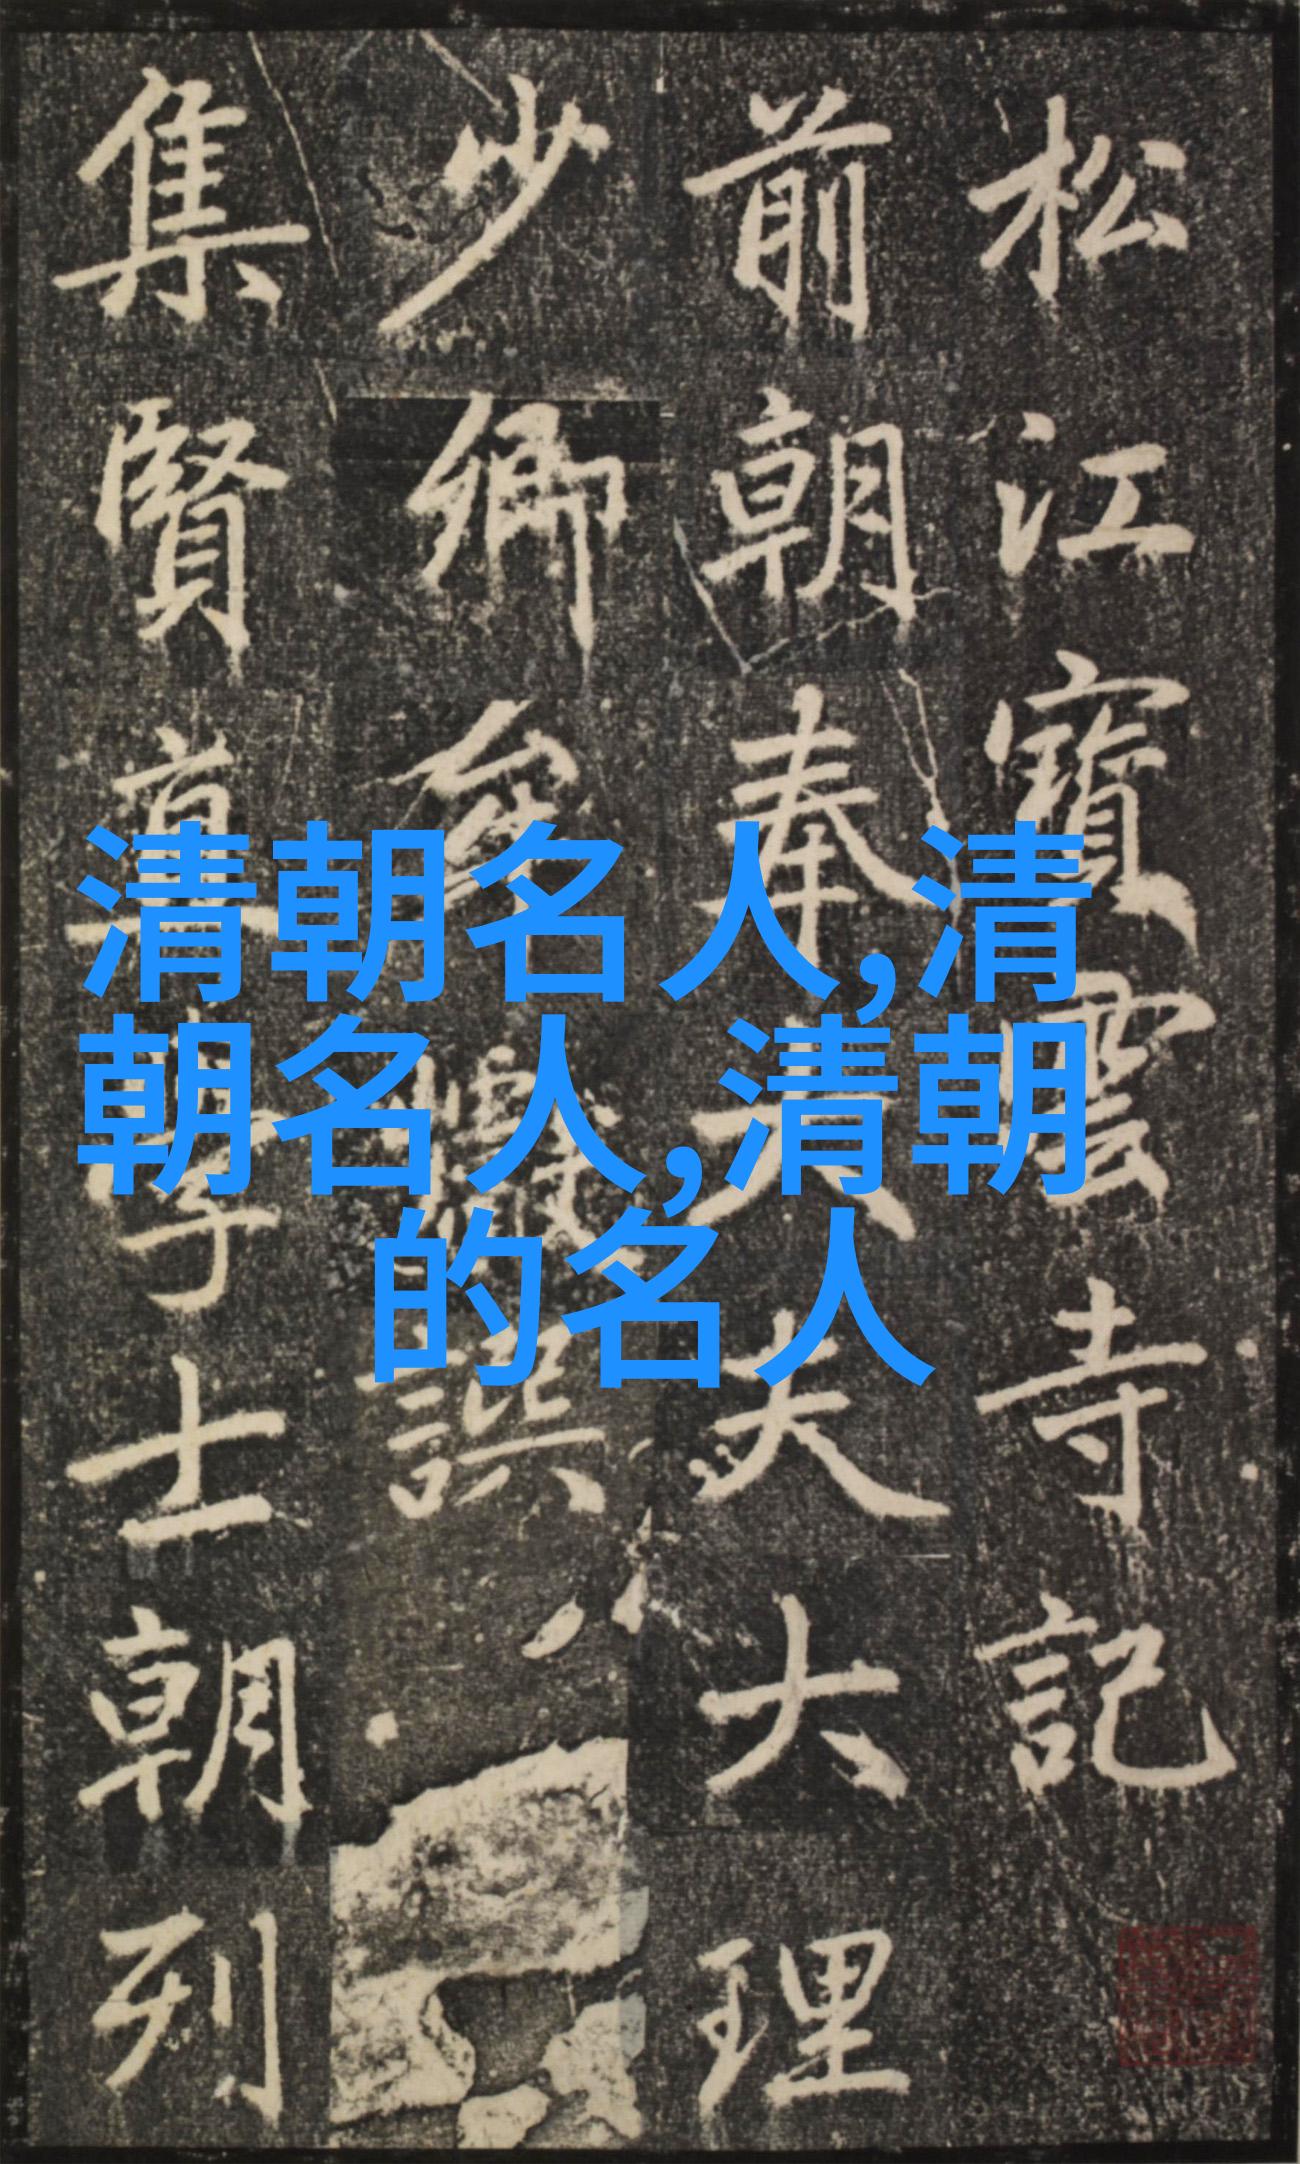 松江寳雲寺記
前朝奉大夫大理
少卿牟巘譔
集賢直學士朝列
清朝名人,清
朝名人,清朝
的名人